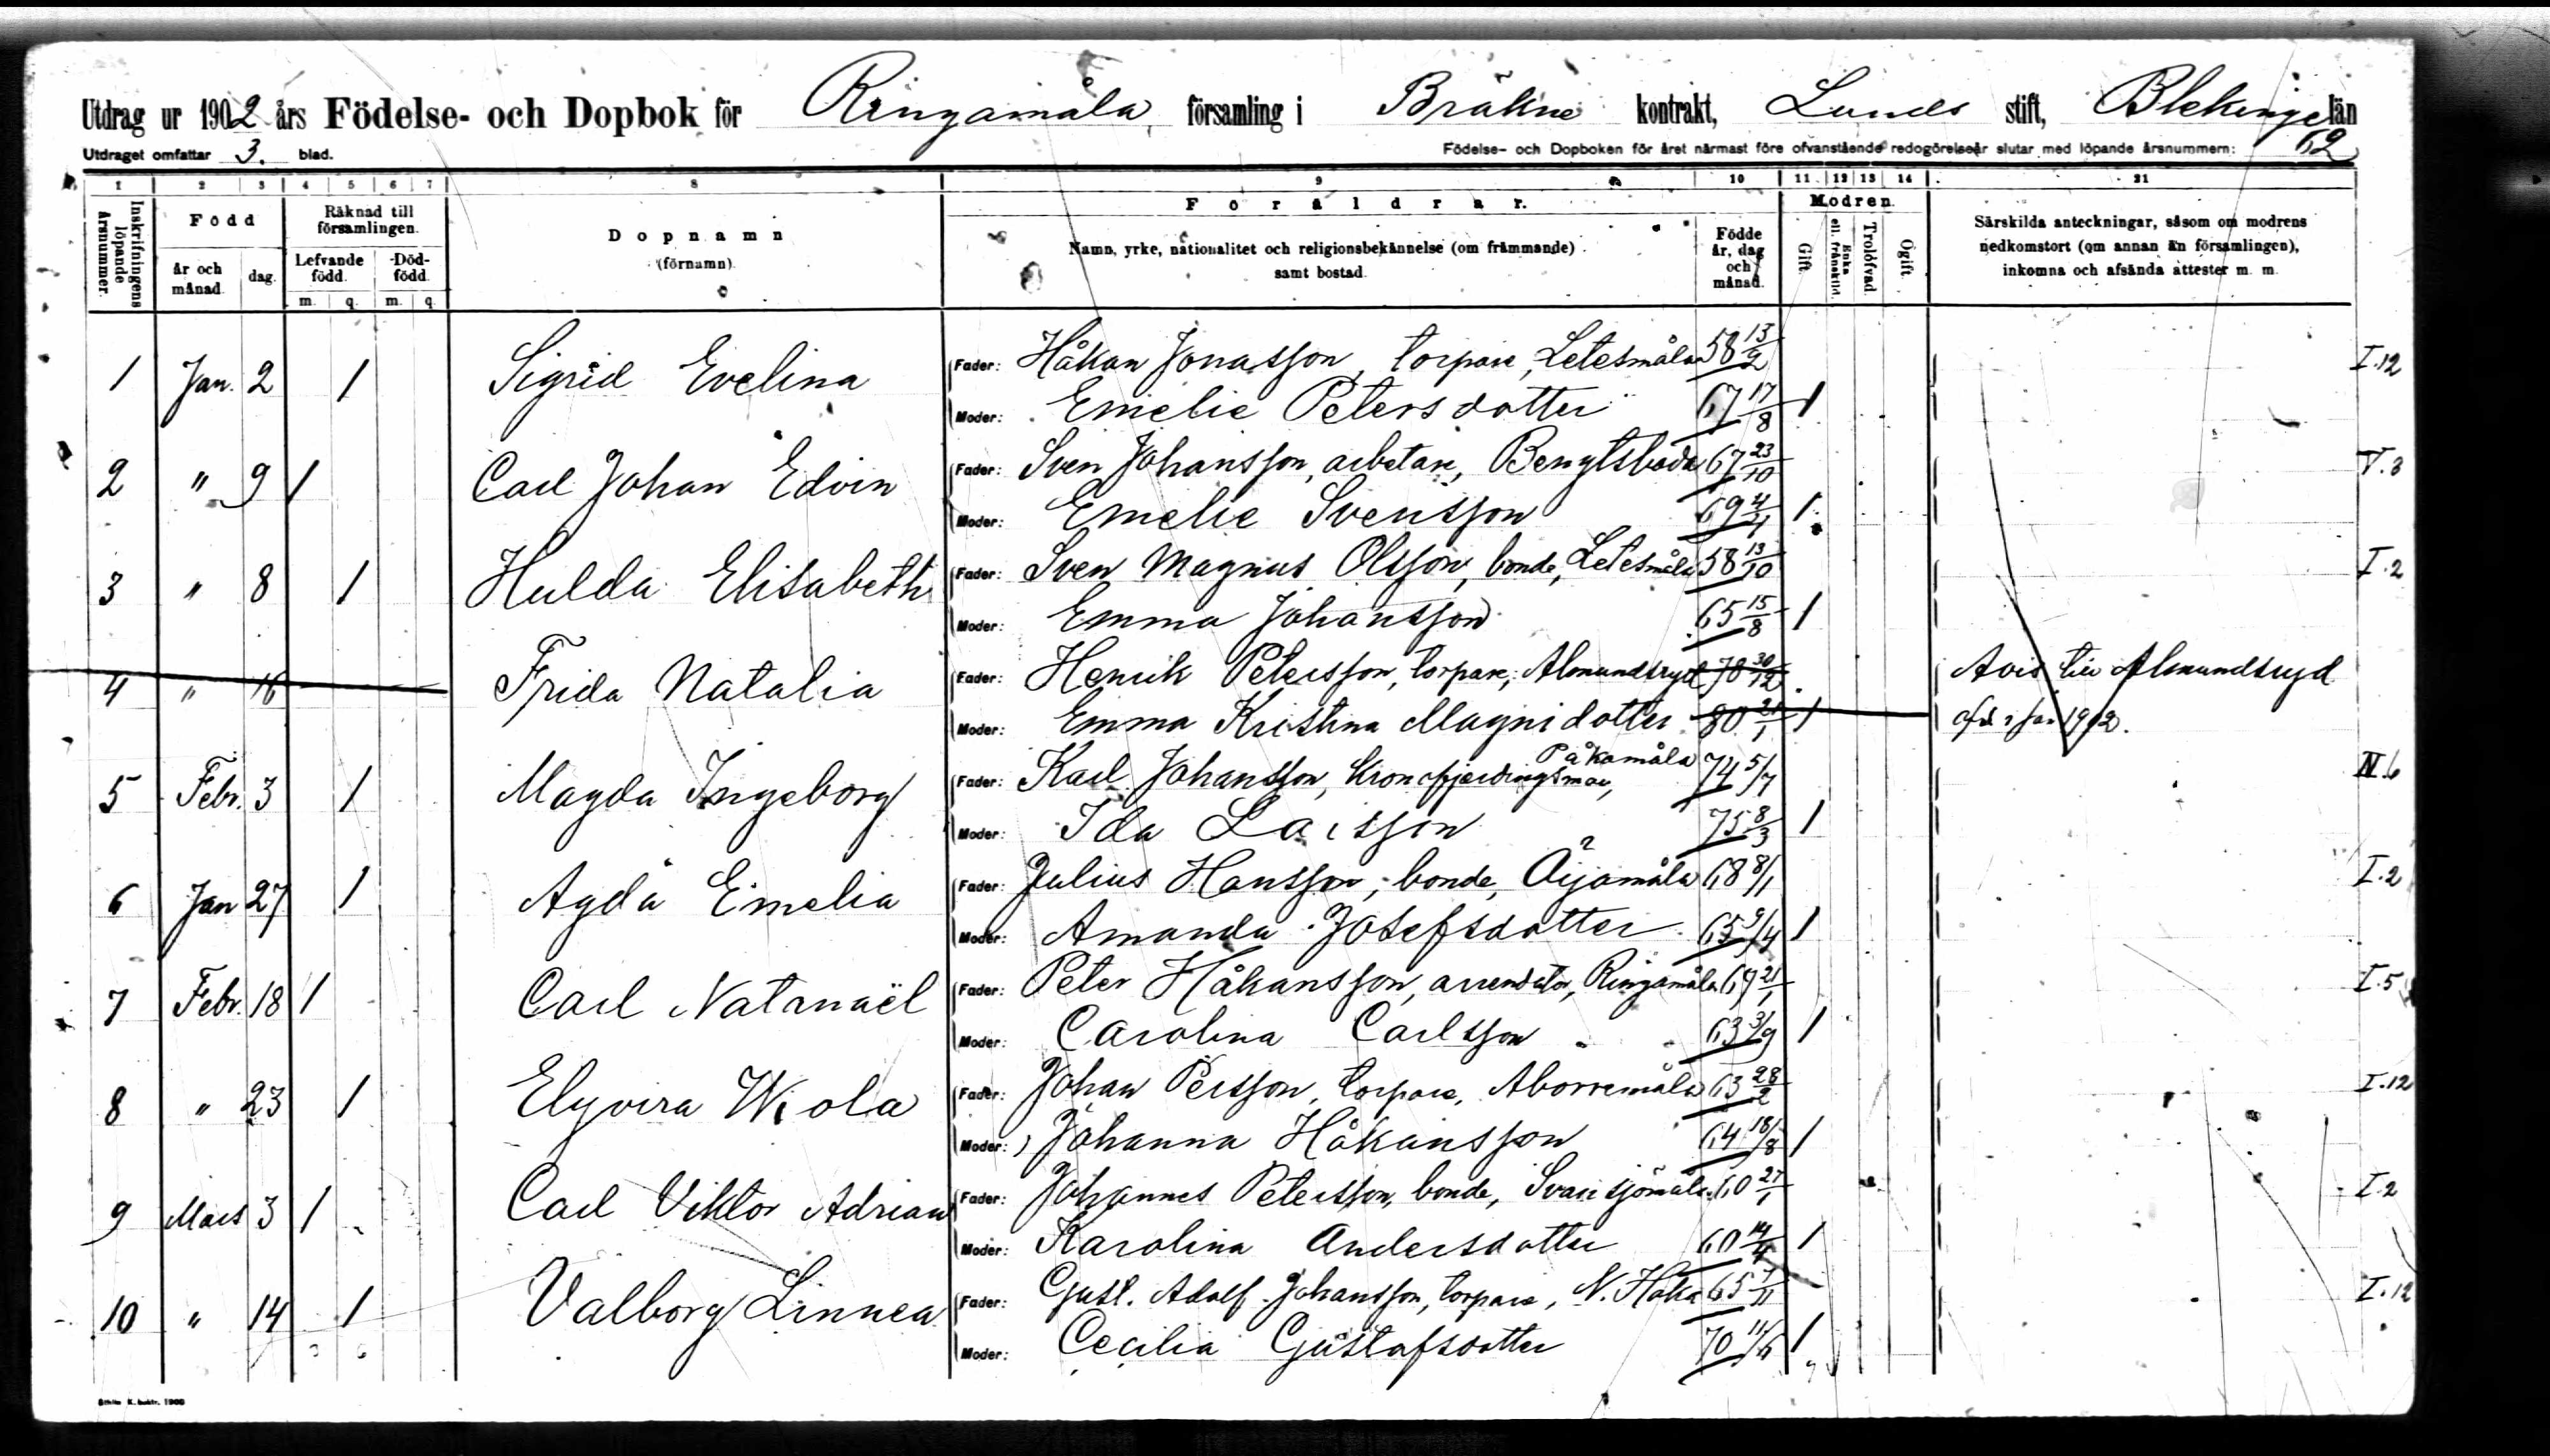 Utdrag ur 1902 års Födelse- och Dopbok för Ringamåla församling i Bräkne kontrakt, Lunds stift, Blekinge län
Utdraget omfattar 3. blad. Födelse- och Dopboken för året närmast före ofvanstående redogörelseår slutar med löpande årsnummern: 62
1 2 3 4 5 6 7 8 9 10 11 12 13 14 21
Inskrifningens löpande årsnummer.
Född
år och månad.
dag.
Räknad till församlingen.
Lefvande född.
Död-född.
m. q. m. q.
Dopnamn
(förnamn).
Föräldrar.
Namn, yrke, nationalitet och religionsbekännelse (om främmande)
samt bostad.
Födde år, dag och månad.
Modren.
Gift.
Enka ell. frånskild.
Trolofvad.
Ogift.
Särskilda anteckningar, såsom om modrens
nedkomstort (om annan än församlingen),
inkomna och afsända attester m. m.
1 Jan. 2 1 Sigrid Evelina Fader: Håkan Jonasson, torpare, Letesmåla 58 13/2 I.12
Moder: Emelie Petersdotter 67 17/8 1
2 " 9 1 Carl Johan Edvin Fader: Sven Johansson, arbetare, Bengtsboda 67 23/10 V.3
Moder: Emelie Svensson 69 1
3 " 8 1 Hulda Elisabeth Fader: Sven Magnus Olsson, bonde, Letesmåla 58 13/10 I.2
Moder: Emma Johansson 65 15/8 1
4 " 16 Frida Natalia Fader: Henrik Petersson, torpare, Almundsryd 78 30/12 Avis till Almundsryd
Moder: Emma Kristina Magnidotter 80 21/1 1 1902.
5 Febr. 3 1 Magda Ingeborg Fader: Karl Johansson, Kronofjerdingsman, Påkamåla 74 5/7 IV.6
Moder: Ida Larsson 75 8/3 1
6 Jan 27 1 Agda Emelia Fader: Julius Hansson, bonde, 68 8/1 I.2
Moder: Amanda Josefsdotter 65 9/4 1
7 Febr. 18 1 Carl Natanaël Fader: Peter Håkansson, arrendator, Ringamåla 69 21/1 I.5
Moder: Carolina Carlsson 63 3/9 1
8 " 23 1 Elyvira Wiola Fader: Johan Persson, torpare, Aborremåla 63 28/2 I.12
Moder: Johanna Håkansson 64 18/8 1
9 Mars 3 1 Carl Viktor Adrian Fader: Johannes Petersson, bonde, Svansjömåla 60 27/1 I.2
Moder: Karolina Andersdotter 60 14/4 1
10 " 14 1 Valborg Linnea Fader: Gust. Adolf Johansson, torpare, N. Hoka 65 7/11 I.12
Moder: Cecilia Gustafsdotter 70 11/6 1
Sthlm K. boktr. 1900